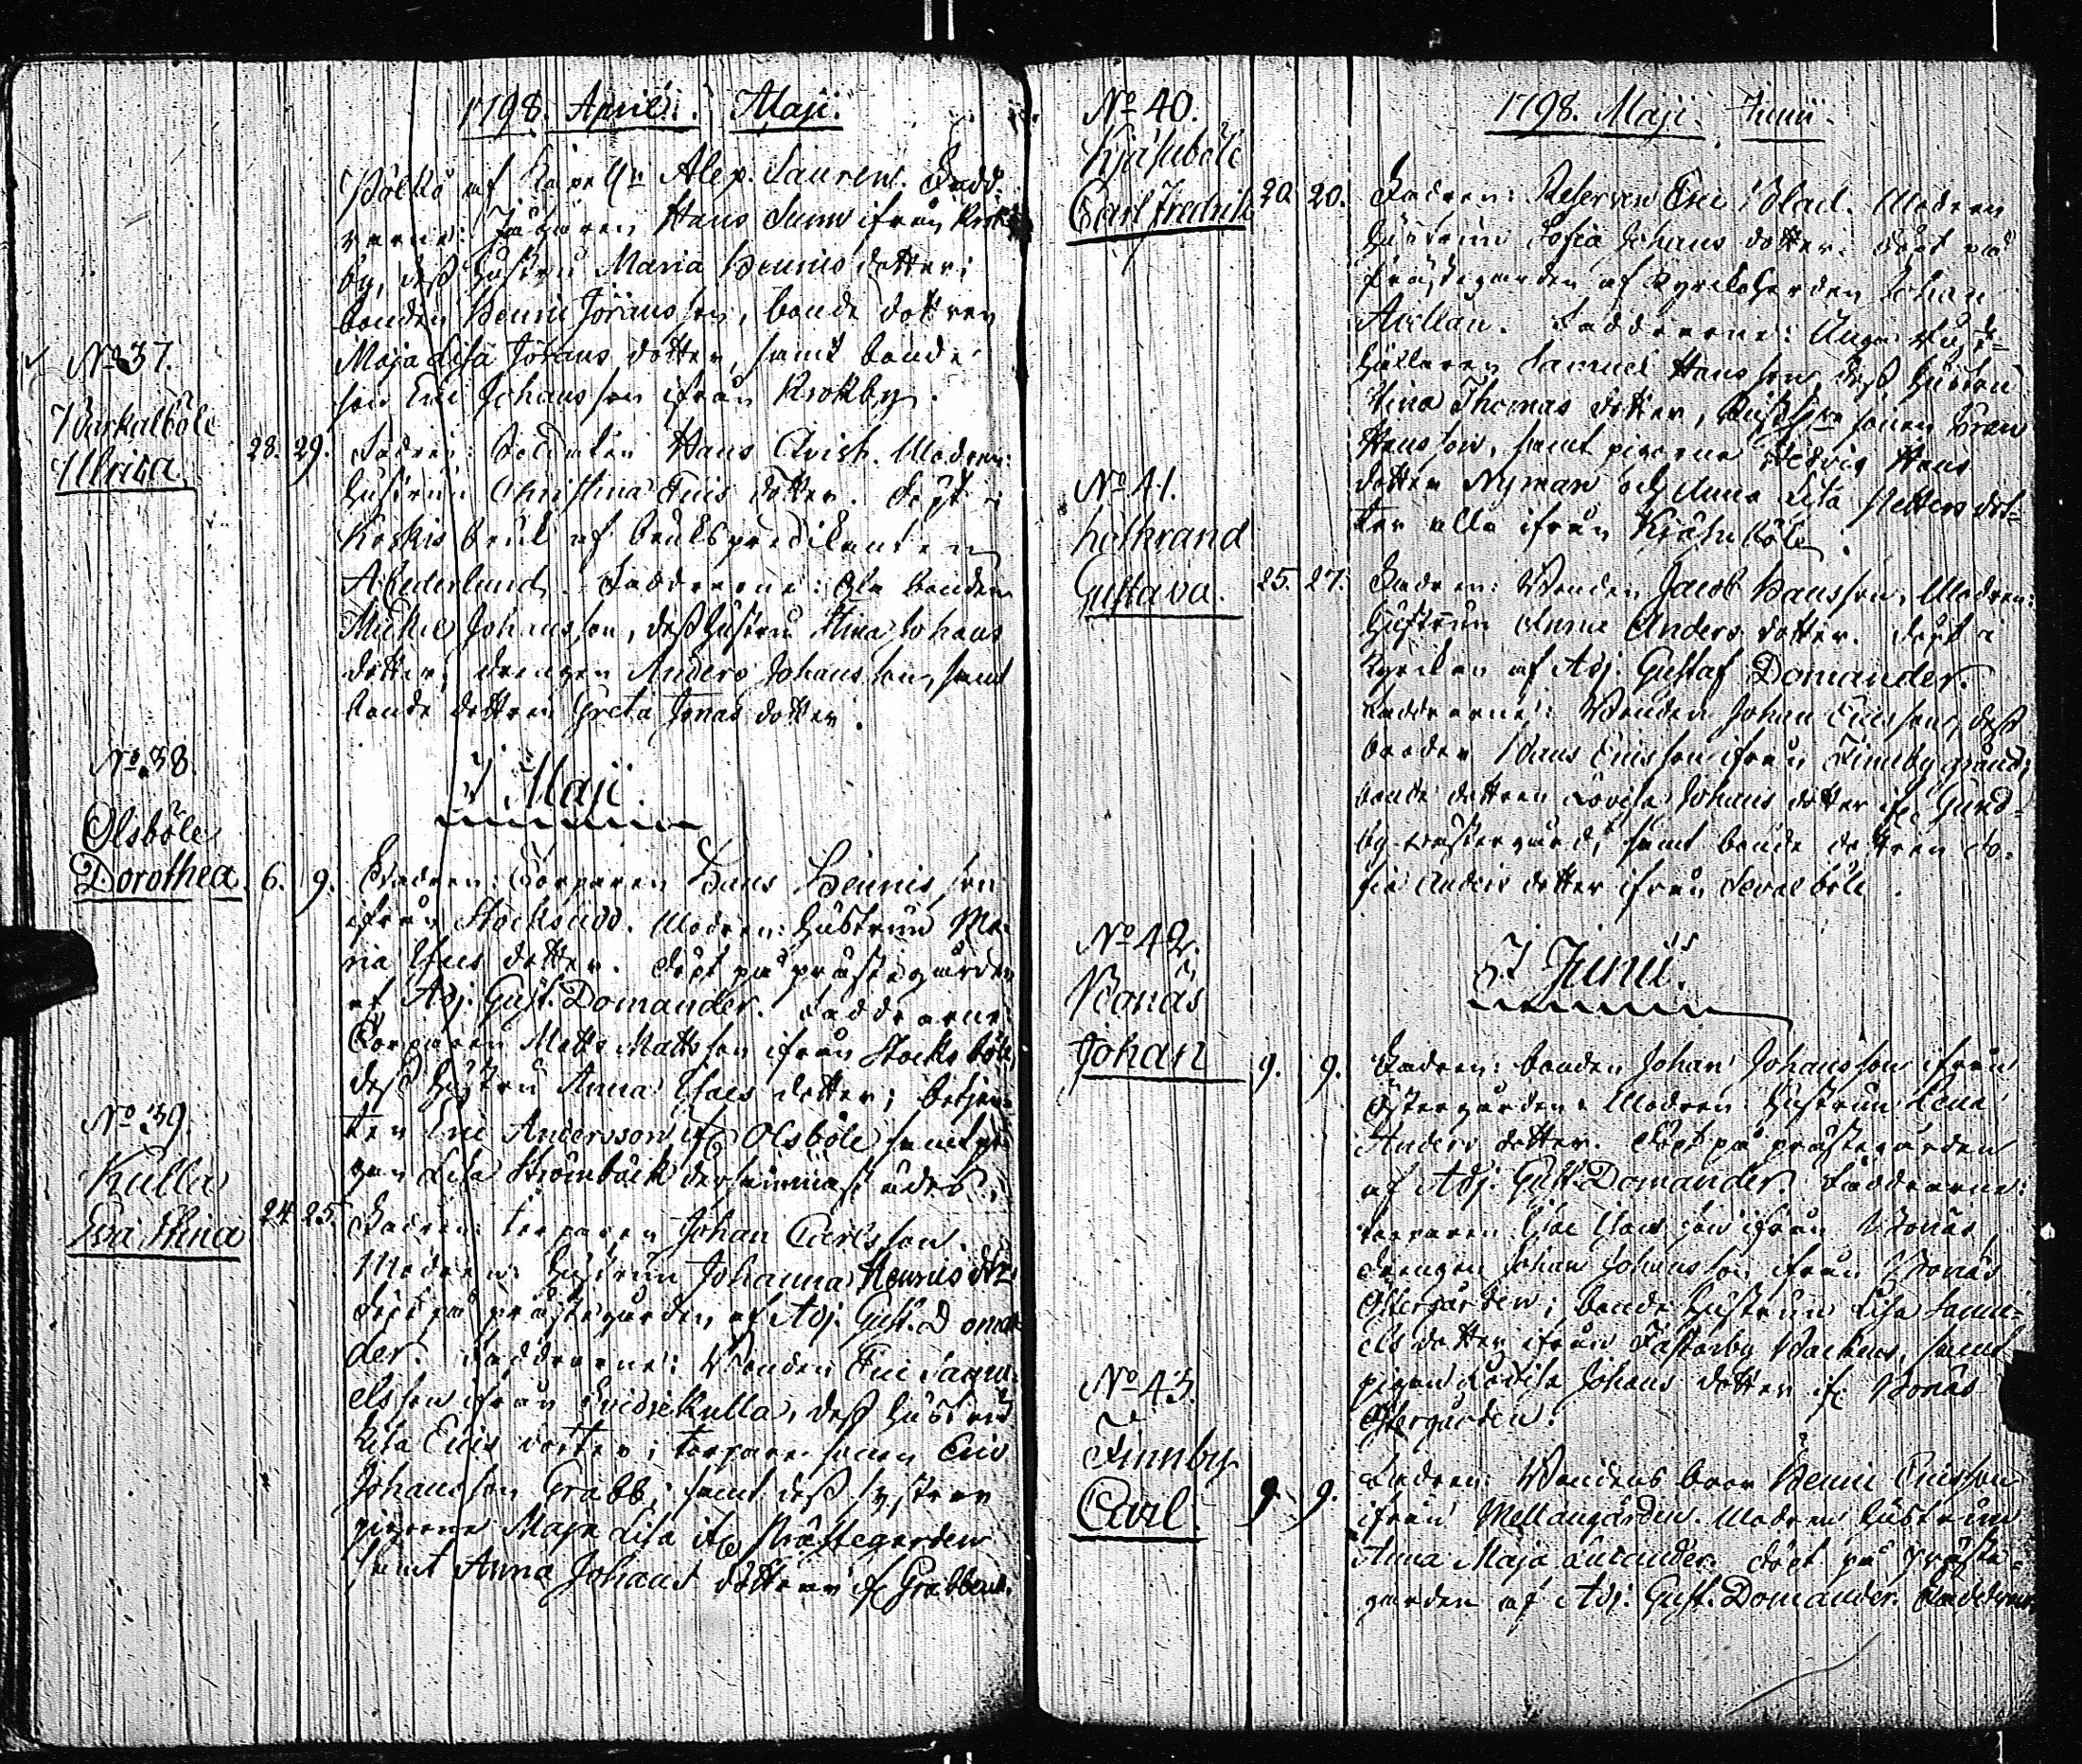 1798. April. Maji.
Pölkö af Capell:n Alex. Laurent. Fadd-
rarne: Hans Sunn ifrån Krok-
by, dess hustru Maria Henrics dotter;
bonden Henric Jöransson, bonde dottren
Maja Lisa Jörans dotter, samt bonde
son Eric Johansson ifrån Krokby.
No 37.
Ulrica 28. 29. Fadren: Soldaten Hans Qvist. Modren:
hustrun Christina Erics dotter. Döpt i
Koskis bruk af bruks predikanten
A. Cederlund. Faddrarne: bonden
Mickel Johansson, dess hustru Stina Johans
dotter; drengen Anders Johansson, samt
bonde dottren Greta Jonas dotter.
I Maji.
No 38.
Olsböle
Dorothea. 6. 9. Fadren: Torparen Hans Henricsson
ifrån Stocksudd. Modren: hustrun Ma-
ria Isacs dotter. Döpt på prästegården
af Adj. Gust. Domander. Faddrarne:
Torparen Matts Mattsson ifrån Stocksböle,
dess hustru Anna Isacs dotter; betjen-
ten Eric Andersson if. Olsböle samt pi-
gan Lisa Strömbäck dersammast
No 39.
Kulla
Eva Stina 24. 25. Fadren: torparen Johan Carlsson.
Modren: hustrun Johanna Henrics dotr
döpt på prästegården af Adj. Gust. Doman-
der. Faddrarne: Bonden Eric Samu-
elsson ifrån Kulla, dess hustru
Lisa Erics dotter; torpare sonen Eric
Johansson Grabb; samt dess systrar
pigorne Maja Lisa if. Prästegården
samt Anna Johans dotter if. Grabbens.
1798. Maji. Junii.
No 40.
Kjählböle
Carl Fredrik 20. 20. Fadren: Reserven Eric Blad. Modren
hustrun Sofia Johans dotter. Döpt på
prästegården af Kyrkoherden Johan
Avellan. Faddrarne:
hållaren Samuel Hansson, dess hustru
Stina Thomas dotter, sonen Jöran
Hansson, samt pigorne Hedvig Hans
dotter Nyman och Anna Lisa Petters dot-
ter alla ifrån Kjählböle.
No 41.
Gustava. 25. 27. Fadren: Bonden Jacob Hansson. Modren:
hustrun Anna Anders dotter. Döpt i
kyrkan af Adj. Gustaf Domander.
Faddrarne: Bonden Johan Ericsson, dess
broder Hans Ericsson ifrån Finnby grand;
bonde dottren Lovisa Johans dotter if. Gund-
by westergård; samt bonde dottren So-
fia Anders dotter ifrån
I Junii.
No 42.
Bonäs
Johan 9. 9. Fadren: bonden Johan Johansson ifrån
Östergården. Modren: hustrun Lena
Anders dotter. Döpt på prästegården
af Adj. Gust. Domander. Faddrarne:
torparen Isac Isacsson ifrån Bonäs,
drengen Johan Johansson ifrån Bonäs
Östergården; bonde hustrun Lisa Samu-
els dotter ifrån Fastarby Backens, samt
pigan Lovisa Johans dotter if. Bonäs
Östergården.
No 43.
Finnby
Carl. 9. 9. Fadren: Bondens bror Henric Ericsson
ifrån Mellangården. Modren hustrun
Anna Maja Lucander. Döpt på präste-
gården af Adj. Gust. Domander. Faddrarne